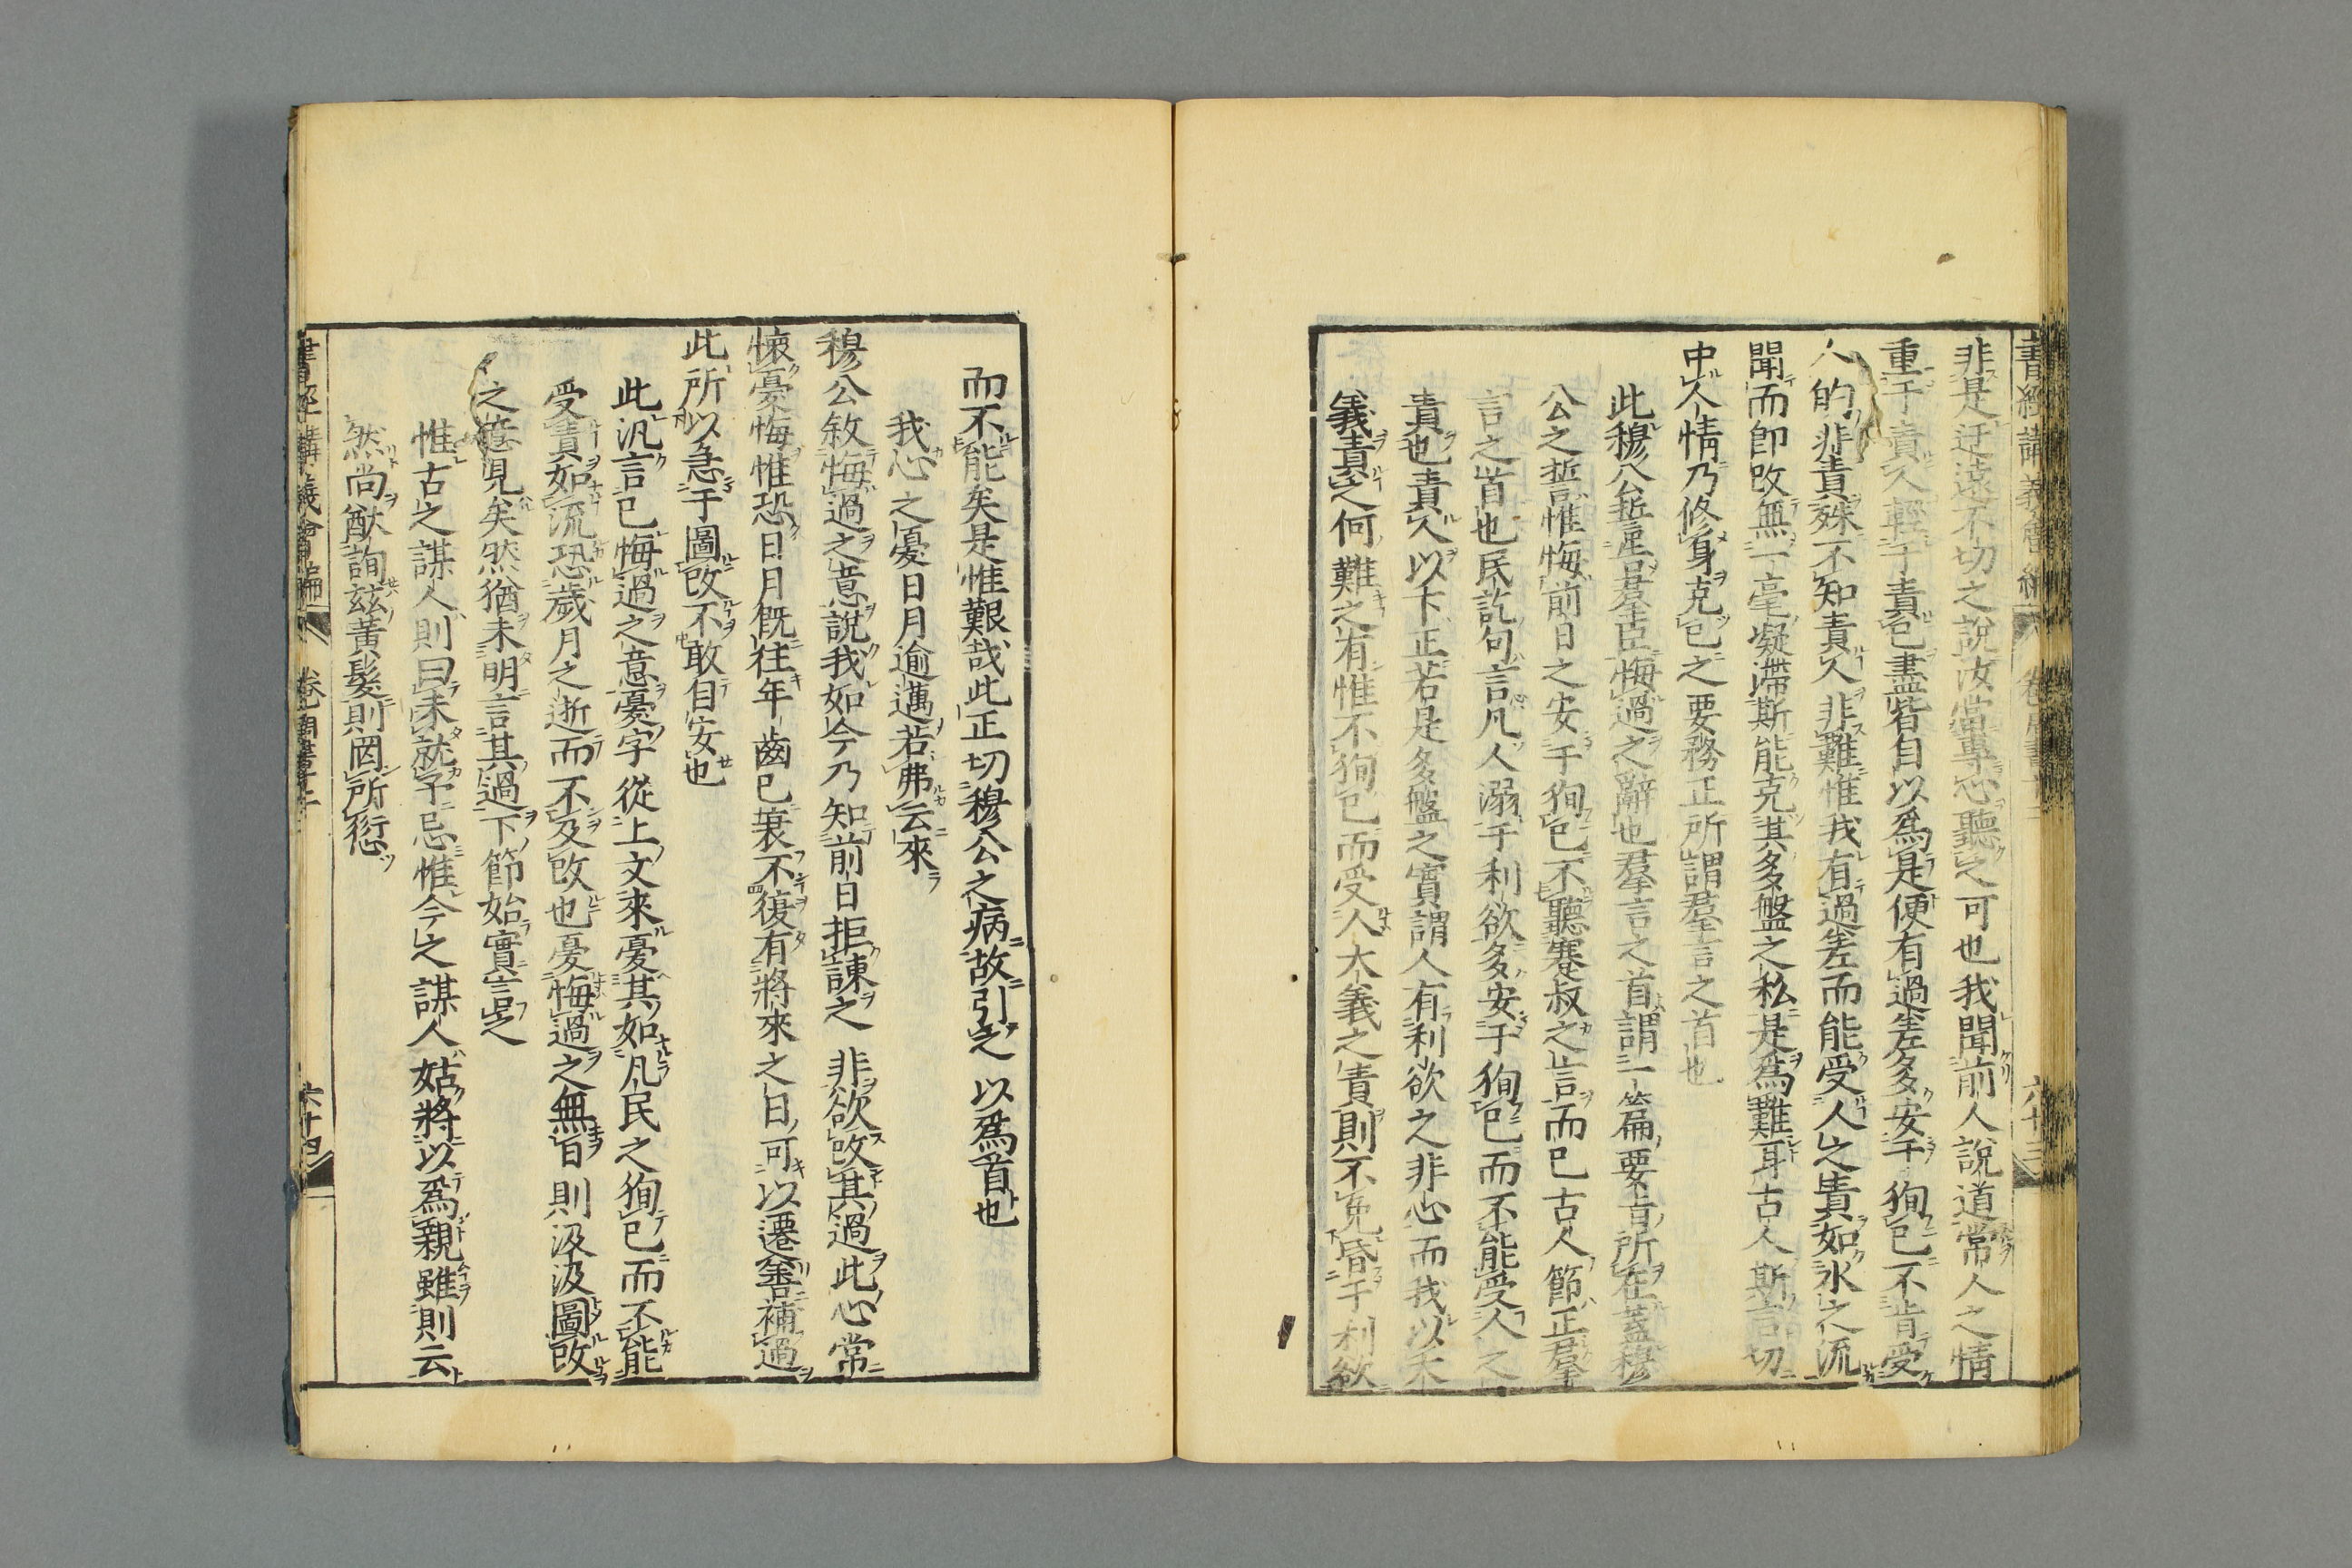 書經講義會編 卷 周書十二 六十三
非是迂遠不切之說汝當專心聽之可也我聞前人說道常人之情
重于責人輕于責己盡皆自以爲是便有過差多安于狥己不肯受
人的非責殊不知責人非難惟我有過差而能受人之責如水之流
聞而即改無一毫凝滯斯能克其多盤之私是爲難耳古人斯言切
中人情乃修身克己之要務正所謂羣言之首也
此穆公誓告羣臣悔過之辭也羣言之首謂一篇要言所在蓋穆
公之誓惟悔前日之安于狥己不聽蹇叔之言而已古人節正羣
言之首也民訖句言凡人溺于利欲多安于狥己而不能受人之
責也責人以下正若是多盤之實謂人有利欲之非心而我以未
義責之何難之有惟不狥己而受人大義之責則不免昏于利欲
而不能矣是惟艱哉此正切穆公之病故引之以爲首也
我心之憂日月逾邁若弗云來
穆公敘悔過之意說我如今乃知前日拒諫之非欲改其過此心常
懷憂悔惟恐日月既往年齒已衰不復有將來之日可以遷善補過
此所以急于圖改不敢自安也
此汎言己悔過之意憂字從上文來憂其如凡民之狥己而不能
受責如流恐歲月之逝而不及改也憂悔過之無日則汲汲圖改
之意見矣然猶未明言其過下節始實言之
惟古之謀人則曰未就予忌惟今之謀人姑將以爲親雖則云
然尚猷詢茲黃髮則罔所愆
書經講義會編 卷 周書十二 六十四